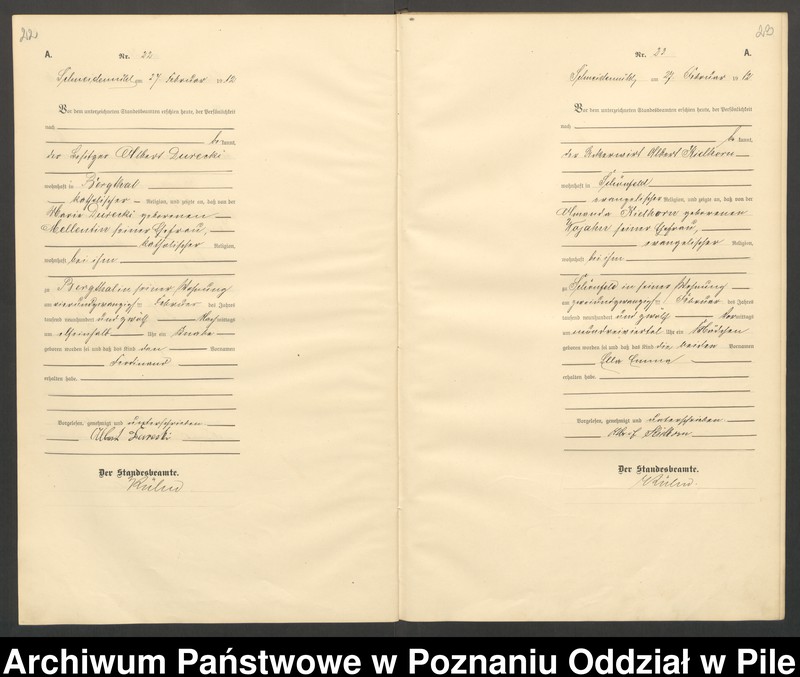 22
A.
Nr. 22
Schneidemühl, am 27. Februar 1912
Vor dem unterzeichneten Standesbeamten erschien heute, der Persönlichkeit
nach
bekannt,
der Besitzer Albert Durecki
wohnhaft in Bergthal
katholischer Religion, und zeigte an, daß von der
Maria Durecki geborenen
Mellentin seiner Ehefrau,
katholischer Religion,
wohnhaft bei ihm
zu Bergthal in seiner Wohnung
am vierundzwanzigsten Februar des Jahres
tausend neunhundert und zwölf Nachmittags
um Uhr ein Knabe
geboren worden sei und daß das Kind den Vornamen
Ferdinand
erhalten habe.
Vorgelesen, genehmigt und unterschrieben
Der Standesbeamte.
23
A.
Nr. 23
Schneidemühl, am 27. Februar 1912
Vor dem unterzeichneten Standesbeamten erschien heute, der Persönlichkeit
nach
bekannt,
der Ackerwirt Albert Kielhorn
wohnhaft in Schönfeld
evangelischer Religion, und zeigte an, daß von der
Amanda Kielhorn geborenen
Wojahn seiner Ehefrau,
evangelischer Religion,
wohnhaft bei ihm
zu Schönfeld in seiner Wohnung
am zweiundzwanzigsten Februar des Jahres
tausend neunhundert und zwölf Vormittags
um Uhr ein Mädchen
geboren worden sei und daß das Kind die beiden Vornamen
Ella Emma
erhalten habe.
Vorgelesen, genehmigt und unterschrieben
Der Standesbeamte.
Archiwum Państwowe w Poznaniu Oddział w Pile